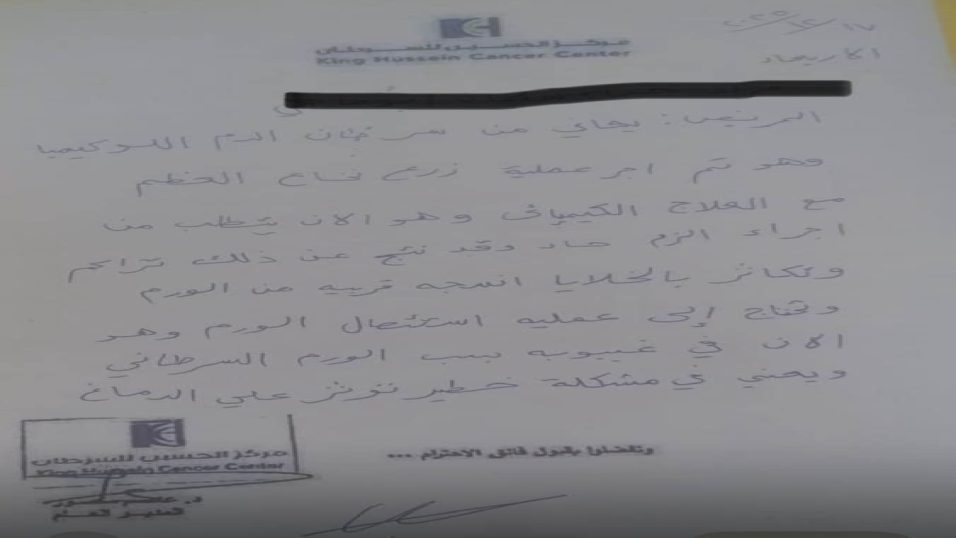 مركز الحسين للسرطان
King Hussein Cancer Center
الاربعاء
المريض: يعاني من سرطان الدم اللوكيميا
وهو تم اجر عملية زرع نخاع العظم
مع العلاج الكيميائي وهو الان يتطلب من
اجراء الزم حاد وقد نتج عن ذلك تراكم
وتكاثر بالخلايا انسجه قريبه من الورم
وتحتاج إلى عمليه استئصال الورم وهو
الان في غيبوبه بسب الورم السرطاني
ويعني في مشكلة خطير تؤثر علي الدماغ
وتفضلوا بقبول فائق الاحترام ...
مركز الحسين للسرطان
King Hussein Cancer Center
د. عاصم منصور
المدير العام